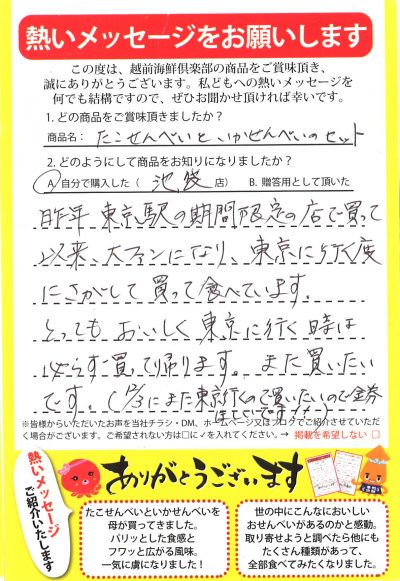 熱いメッセージをお願いします
この度は、越前海鮮倶楽部の商品をご賞味頂き、
誠にありがとうございます。私どもへの熱いメッセージを
何でも結構ですので、ぜひお聞かせ頂ければ幸いです。
1. どの商品をご賞味頂きましたか？
商品名： たこせんべいと、いかせんべいのセット
2. どのようにして商品をお知りになりましたか？
A. 自分で購入した（ 池袋 店） B. 贈答用として頂いた
昨年 東京駅の期間限定の店で買って
以来、大ファンになり、東京に行く度
にさがして買って食べています。
とっても おいしく 東京に行く時は
必らず買って帰ります。また買いたい
です。(12/3にまた東京行くので買いたいので金券
ほしいです!!)
※皆様からいただいたお声を当社チラシ・DM、ホームページ又はブログでご紹介させていただ
く場合がございます。ご希望されない方は□に✓を入れてください。→ 掲載を希望しない □
熱いメッセージ
ご紹介いたします
ありがとうございます
たこせんべいといかせんべいを
母が買ってきました。
パリッとした食感と
フワッと広がる風味。
一気に虜になりました！
世の中にこんなにおいしい
おせんべいがあるのかと感動。
取り寄せようと調べたら他にも
たくさん種類があって、
全部食べてみたくなりました。